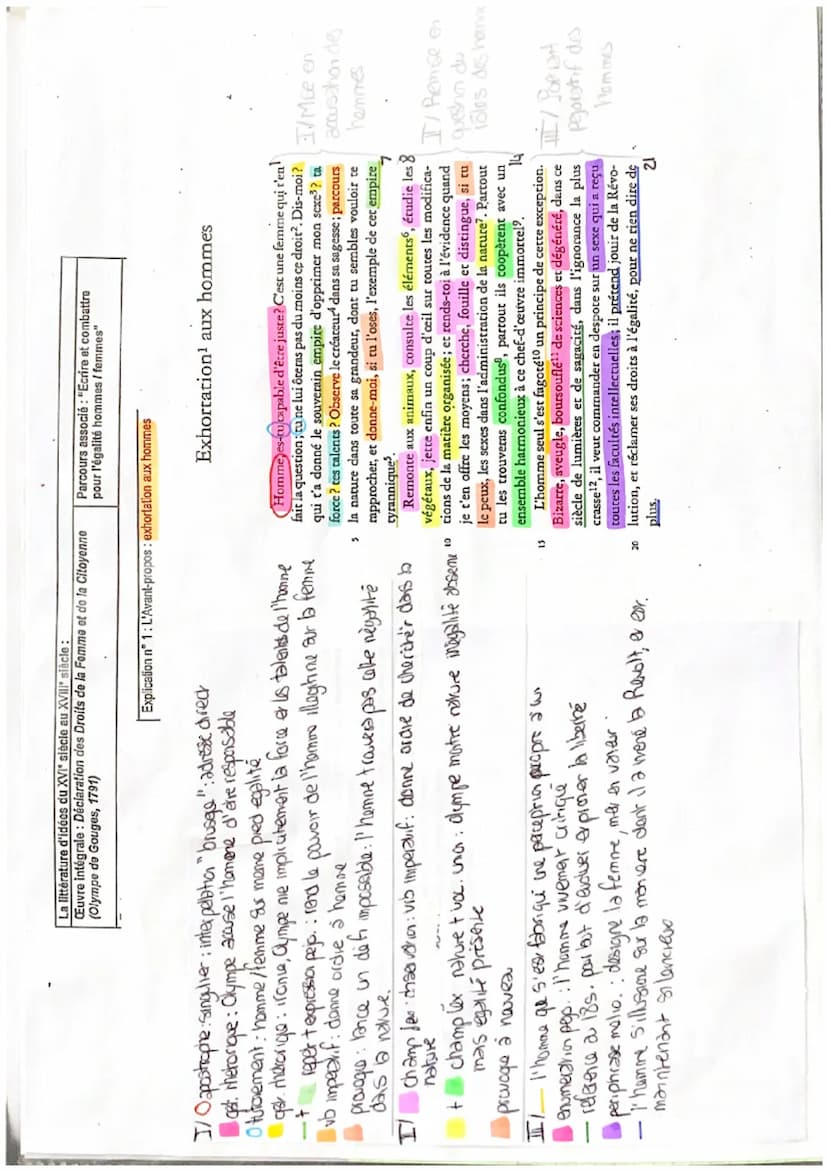 La littérature d'idées du XVIᵉ siècle au XVIIIᵉ siècle :
Œuvre intégrale : Déclaration des Droits de la Femme et de la Citoyenne
(Olympe de Gouges, 1791)
Parcours associé : "Ecrire et combattre
pour l'égalité hommes / femmes"
Explication n° 1 : L'Avant-propos : exhortation aux hommes
Exhortation¹ aux hommes
Homme, es-tu capable d'être juste ? C'est une femme qui t'en 1
fait la question ; tu ne lui ôteras pas du moins ce droit². Dis-moi ?
qui t'a donné le souverain empire d'opprimer mon sexe³ ? ta
force ? tes talents ? Observe le créateur⁴ dans sa sagesse ; parcours
5 la nature dans toute sa grandeur, dont tu sembles vouloir te
rapprocher, et donne-moi, si tu l'oses, l'exemple de cet empire
tyrannique⁵. 7
Remonte aux animaux, consulte les éléments⁶, étudie les 8
végétaux, jette enfin un coup d'œil sur toutes les modifica-
10 tions de la matière organisée ; et rends-toi à l'évidence quand
je t'en offre les moyens ; cherche, fouille et distingue, si tu
le peux, les sexes dans l'administration de la nature⁷. Partout
tu les trouveras confondus⁸, partout ils coopèrent avec un
ensemble harmonieux à ce chef-d'œuvre immortel⁹. 14
15 L'homme seul s'est fagoté¹⁰ un principe de cette exception.
Bizarre, aveugle, boursouflé¹¹ de sciences et dégénéré, dans ce
siècle de lumières et de sagacité, dans l'ignorance la plus
crasse¹², il veut commander en despote sur un sexe qui a reçu
toutes les facultés intellectuelles ; il prétend jouir de la Révo-
20 lution, et réclamer ses droits à l'égalité, pour ne rien dire de
plus. 21
I/ Mise en
accusation des
hommes
II/ Remise en
question du
rôles des hommes
III/ Portrait
péjoratif des
hommes
I/ apostrophe : singulier : interpellation "brusque" : adresse direct
qst. rhétorique : Olympe accuse l'homme d'être responsable
tutoiement : homme/femme sur meme pied egalité
qsr. rhetorique : ironie, Olympe nie implicitement la force et les talents de l'homme
+ repet + expression pejo. : rend le pouvoir de l'homme illegitime sur la femme
vb imperatif : donne ordre à homme
provoque : lance un defi impossible : l'homme trouvera pas cette inégalité
dans la nature.
II/ champ lex : observation : vb imperatif : donne ordre de chercher dans la
nature
+ champ lex nature + voc. union : olympe montre nature inégalité absente
mais egalité présente
provoque à nouveau
III/ l'homme qui s'est fabriqué une perception propre à lui
enumeration pejo. : l'homme vivement critiqué
reference au 18s.
periphrase melio. : designe la femme, met en valeur
l'homme s'illusionne sur la maniere dont il a mené la Revolt, et
maintenant